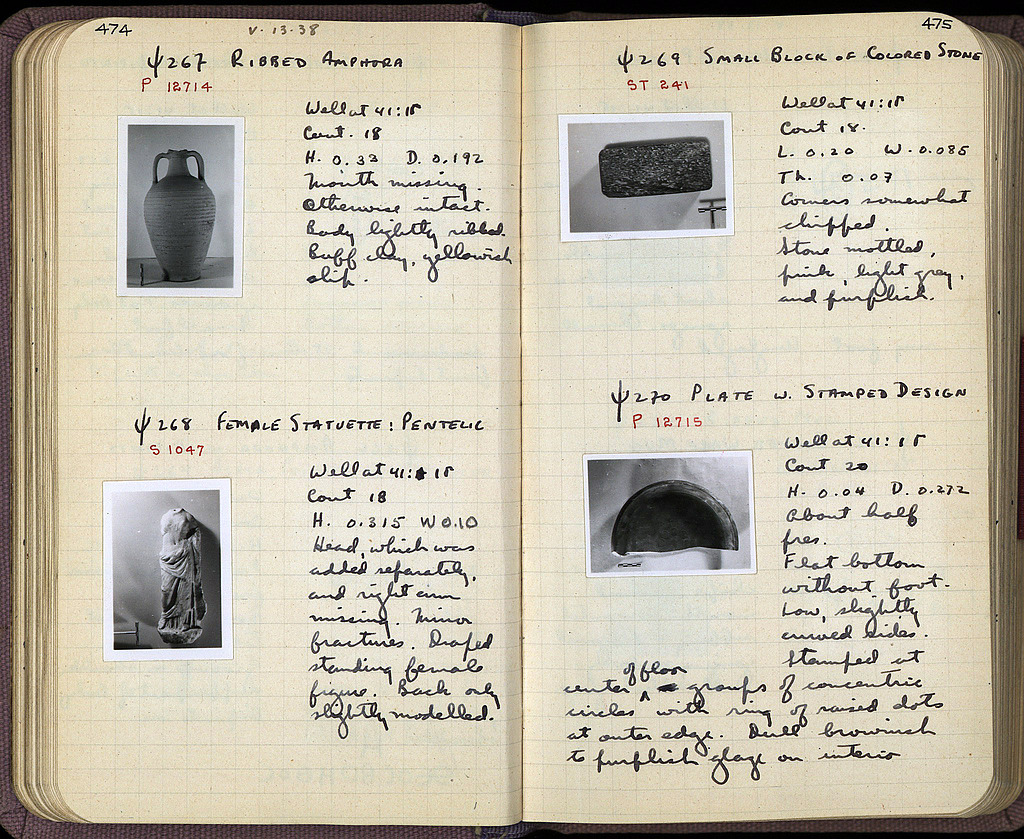 474
V-13-38
Ψ267 RIBBED AMPHORA
P 12714
Well at 41:15
Cont. 18
H. 0.33 D. 0.192
Mouth missing.
Otherwise intact.
Body lightly ribbed.
Buff clay, yellowish
slip.
Ψ268 FEMALE STATUETTE: PENTELIC
S 1047
Well at 41:15
Cont 18
H. 0.315 W 0.10
Head, which was
added separately,
and right arm
missing. Minor
fractures. Draped
standing female
figure. Back only
slightly modelled.
475
Ψ269 SMALL BLOCK OF COLORED STONE
ST 241
Well at 41:15
Cont 18.
L. 0.20 W. 0.085
Th. 0.07
Corners somewhat
chipped.
Stone mottled,
pink, light grey,
and purplish.
Ψ270 PLATE W. STAMPED DESIGN
P 12715
Well at 41:15
Cont 20
H. 0.04 D. 0.272
About half
pres.
Flat bottom
without foot.
Low, slightly
curved sides.
Stamped at
center of floor groups of concentric
circles with ring of raised dots
at outer edge. Dull brownish
to purplish glaze on interior